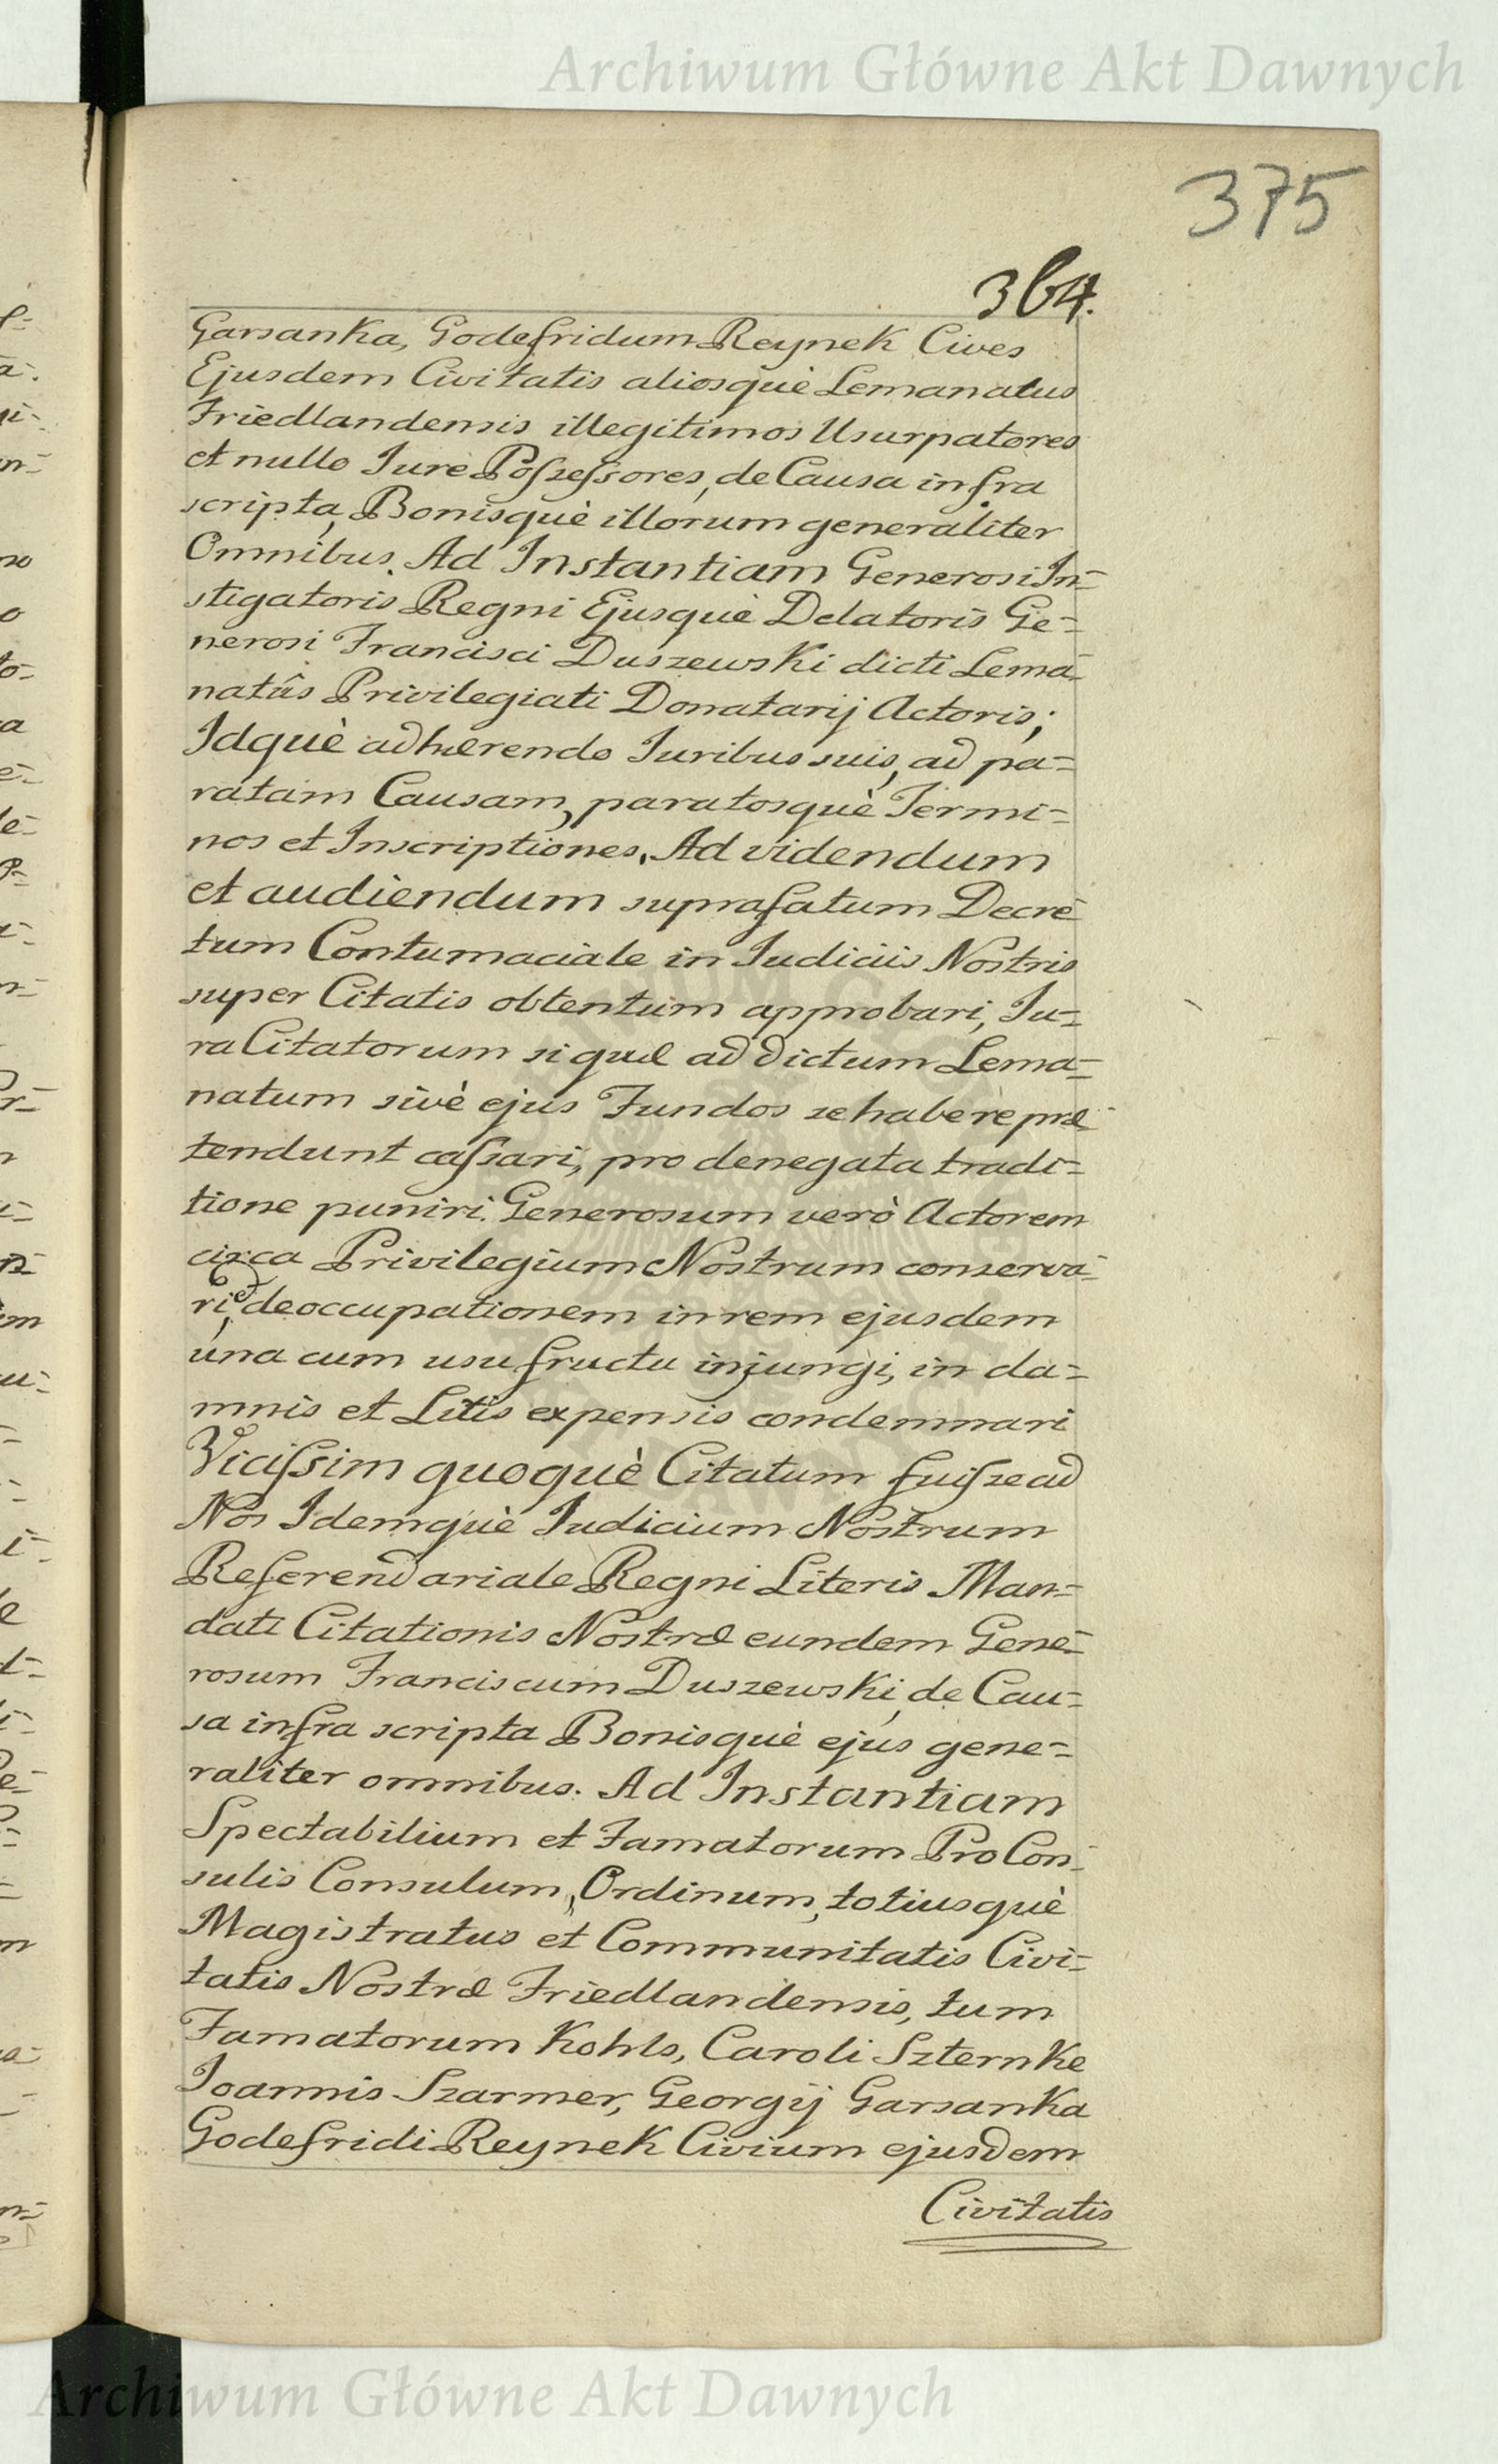 Archiwum Główne Akt Dawnych
375
364.
Garsanka, Godefridum Reynek Cives
Ejusdem Civitatis aliosquè Lemanatus
Friedlandensis illegitimos Usurpatores
et nullo Jure Possessores, de Causa infra
scripta, Bonisquè illorum generaliter
Omnibus. Ad Instantiam Generosi In=
stigatoris Regni Ejusquè Delatoris Ge=
nerosi Francisci Duszewski dicti Lema=
natûs Privilegiati Donatarij Actoris;
Idquè adhærendo Juribus suis, ad pa=
ratam Causam, paratosquè Termi=
nos et Inscriptiones. Ad videndum
et audiendum suprafatum Decre=
tum Contumaciale in Judiciis Nostris
super Citatis obtentum approbari, Ju=
ra Citatorum si quæ ad dictum Lema=
natum sivè ejus Fundos se habere præ=
tendunt cassari, pro denegata tradi=
tione puniri. Generosum verò Actorem
circa Privilegium Nostrum conserva=
ri, et deoccupationem in rem ejusdem
una cum usufructu injungi, in da=
mnis et Litis expensis condemnari
Vicissim quoquè Citatum fuisse ad
Nos Idemquè Judicium Nostrum
Referendariale Regni Literis Man=
dati Citationis Nostræ eundem Gene=
rosum Franciscum Duszewski, de Cau=
sa infra scripta Bonisquè ejus gene=
raliter omnibus. Ad Instantiam
Spectabilium et Famatorum ProCon=
sulis Consulum, Ordinum, totiusquè
Magistratus et Communitatis Civi=
tatis Nostræ Friedlandensis, tum
Famatorum Kohls, Caroli Szternke
Joannis Szarmer, Georgij Garsanka
Godefridi Reynek Civium ejusdem
Civitatis
Archiwum Główne Akt Dawnych